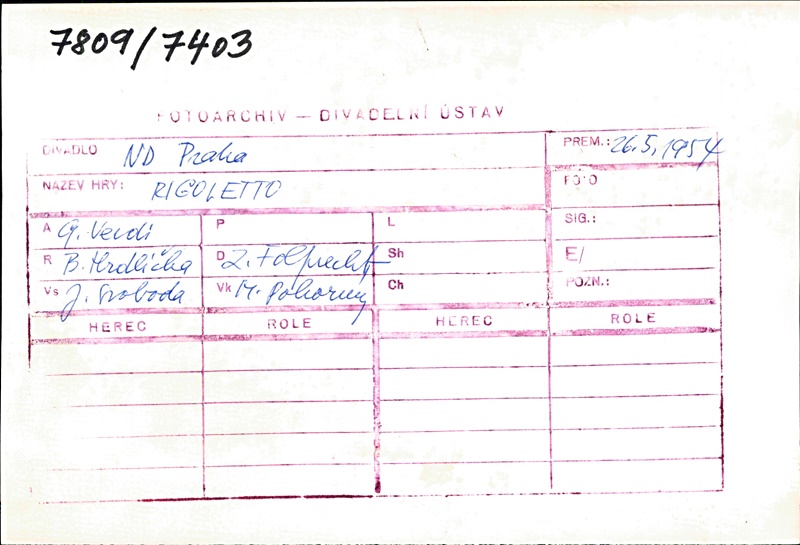 7809/7403
FOTOARCHIV — DIVADELNÍ ÚSTAV
DIVADLO ND Praha PREM.: 26.5.1954
NÁZEV HRY: RIGOLETTO FOTO
A G. Verdi P L SIG.:
R B. Hrdlička D Z. Folprecht Sh E/
Vs J. Svoboda Vk M. Pokorný Ch POZN.:
HEREC ROLE HEREC ROLE